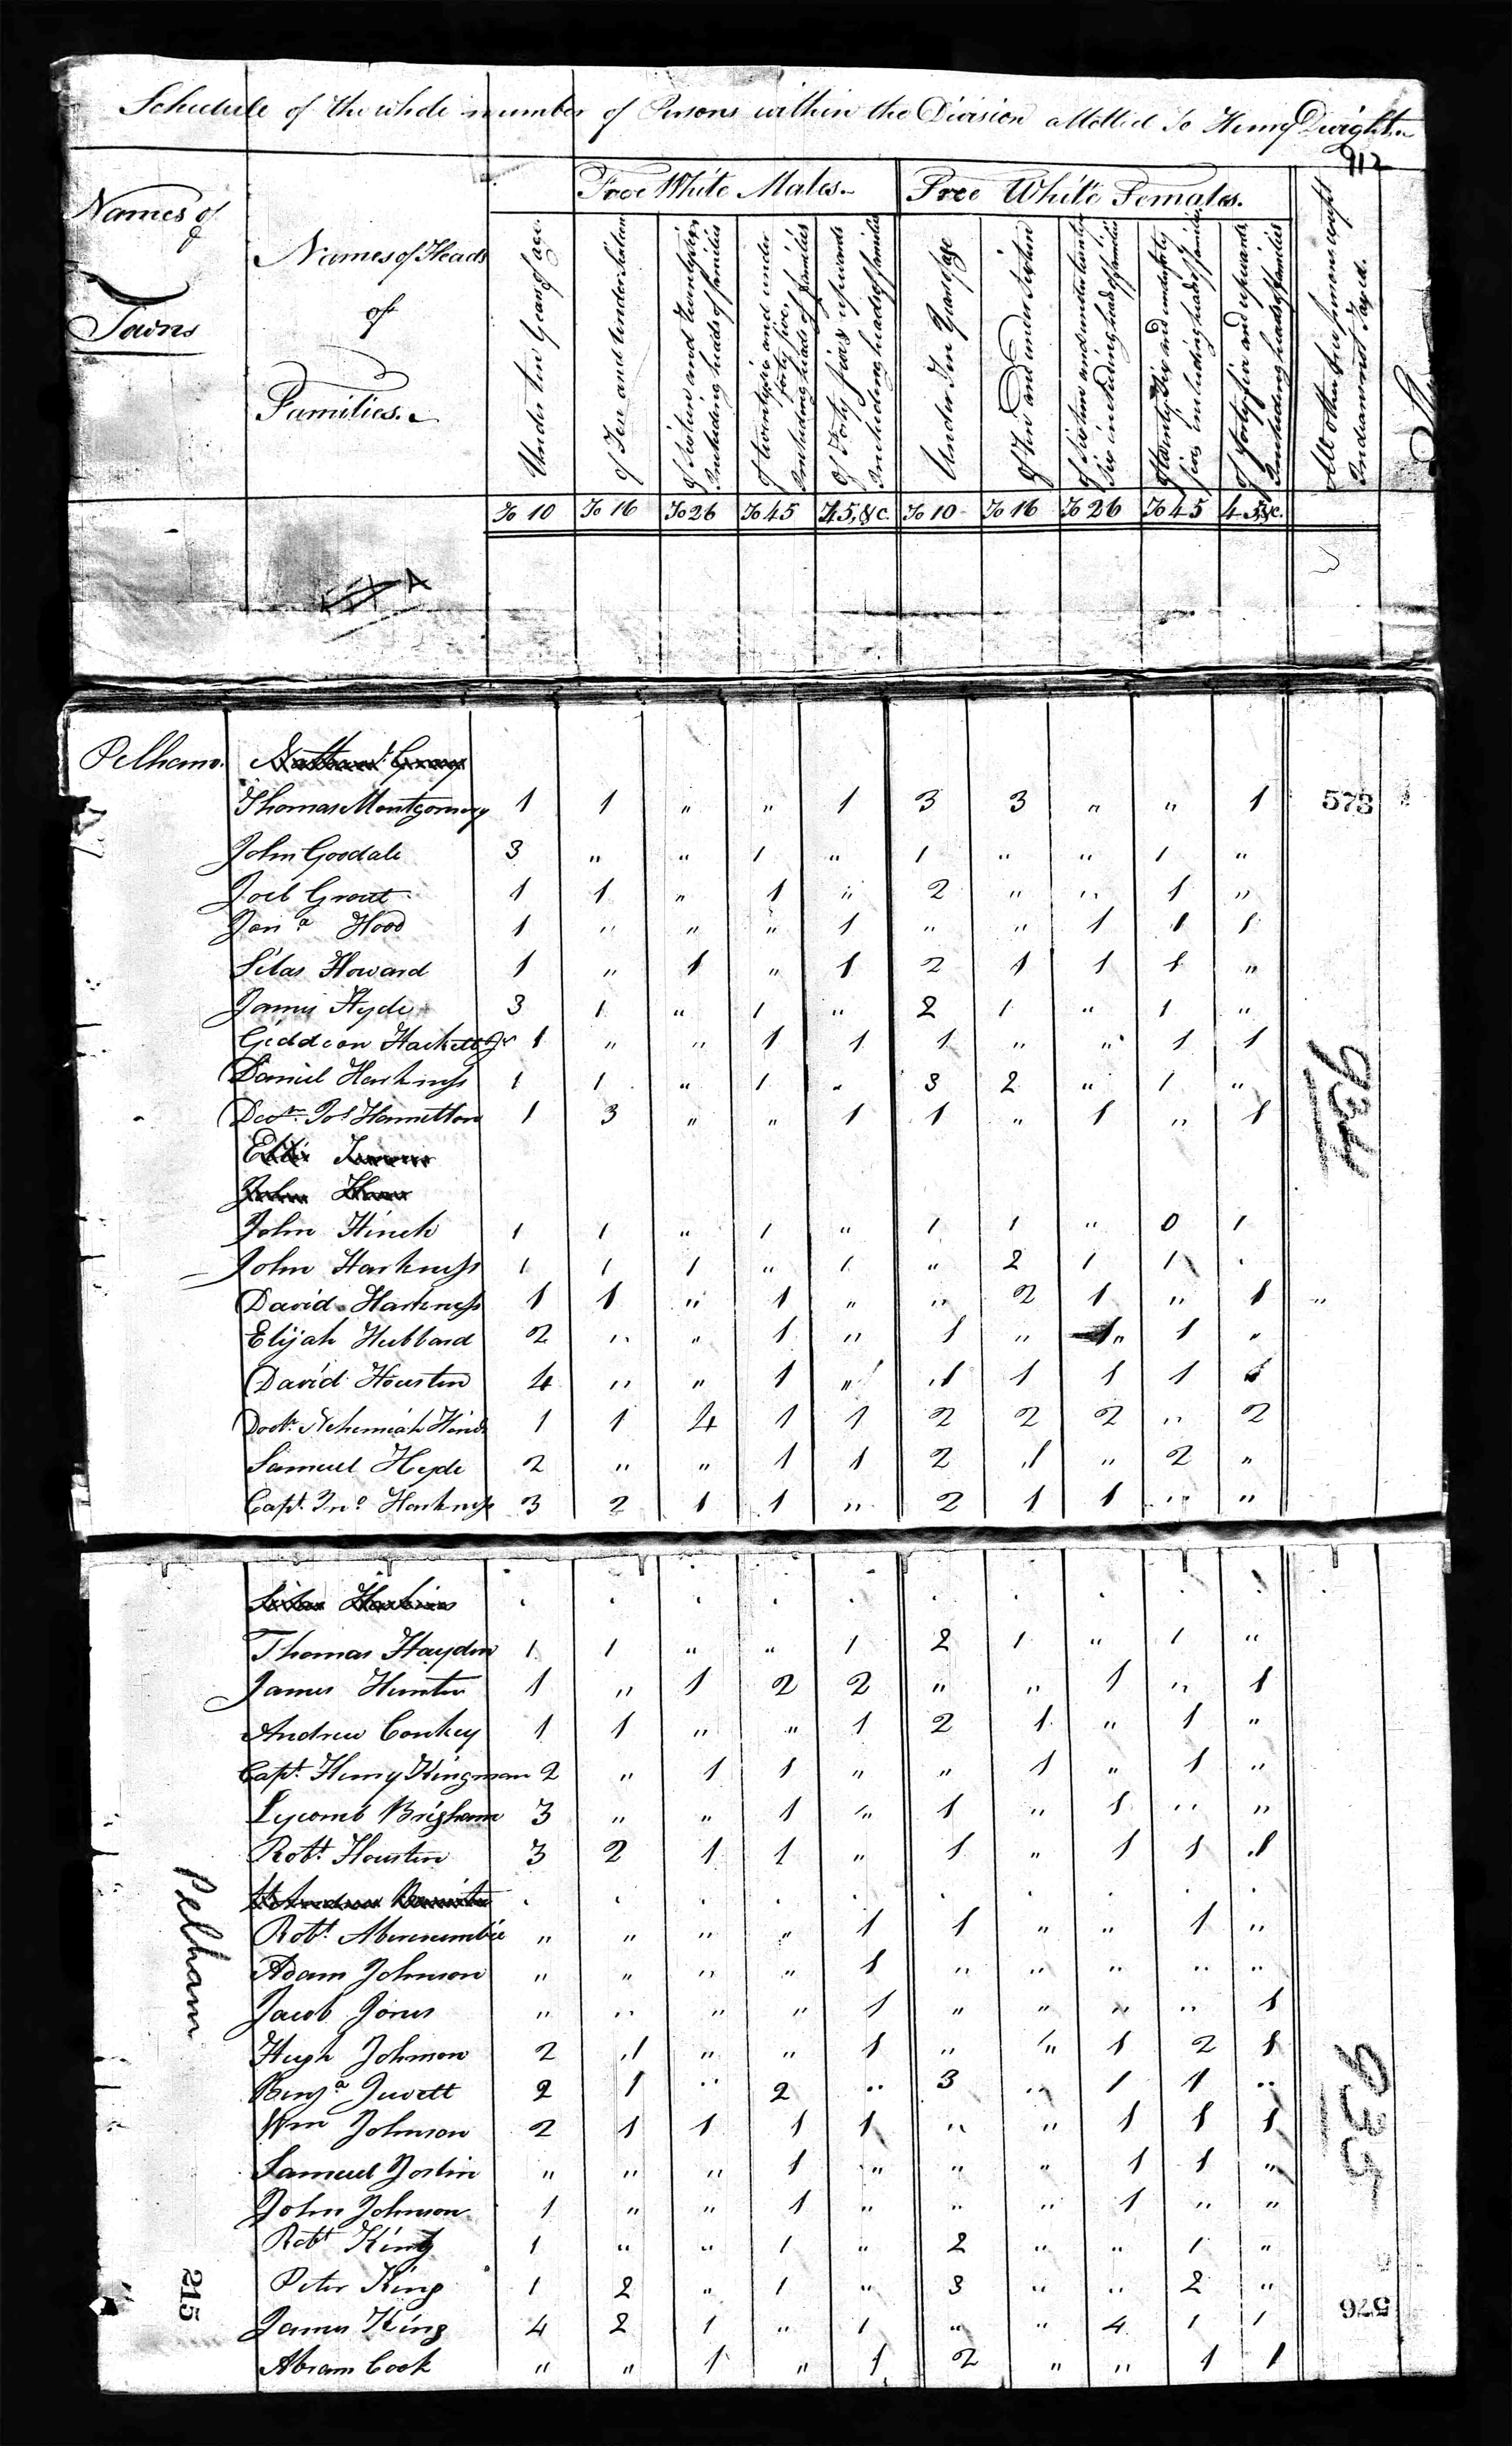 Schedule of the whole number of Persons within the Division allotted to Henry Dwight
912
Names of Towns
Names of Heads of Families.
Free White Males.
Free White Females.
Under ten Years of age.
of Ten and under Sixteen
of Sixteen and Twenty Six Including heads of families
of twenty six and under forty five, Including heads of families
of Forty five & upwards Including heads of families
Under Ten Years of age
of Ten and under Sixteen
of Sixteen and under twenty Six including heads of families
of twenty Six and under forty five including heads of families
of forty five and upwards Including heads of families
All other free persons except Indians not Taxed.
To 10 To 16 To 26 To 45 45, &c. To 10 To 16 To 26 To 45 45 &c.
Pelham.
Thomas Montgomery 1 1 " " 1 3 3 " " 1 573
John Goodale 3 " " 1 " 1 " " 1 "
Joel Grout 1 1 " 1 " 2 " " 1 "
Jona Hood 1 " " " 1 " " 1 1 1
Silas Howard 1 " 1 " 1 2 1 1 1 "
James Hyde 3 1 " 1 " 2 1 " 1 "
Giddeon Hackett Jr 1 " " 1 1 1 " " 1 1
Daniel Harkness 1 1 " 1 " 3 2 " 1 "
Decn Jos Hamelton 1 3 " " 1 1 " 1 " 1
934
John Hinck 1 1 " 1 " 1 1 " 0 1
John Harkness 1 1 1 " 1 " 2 1 1 .
David Harkness 1 1 " 1 " " 2 1 " 1 "
Elijah Hubbard 2 " " 1 " 1 " " 1 "
David Houston 4 " " 1 " 1 1 1 1
Doctr. Nehemiah Hinds 1 1 4 1 1 2 2 2 " 2
Samuel Hyde 2 " " 1 1 2 1 " 2 "
Capt. Jno Harkness 3 2 1 1 " 2 1 1 " "
Thomas Hayden 1 1 " " 1 2 1 " 1 "
James Hunter 1 " 1 2 2 " " 1 " 1
Andrew Conkey 1 1 " " 1 2 1 " 1 "
Capt. Henry Kingman 2 " 1 1 " " 1 " 1 "
Lycomb Brigham 3 " " 1 " 1 " 1 " "
Robt. Houston 3 2 1 1 " 1 " 1 1 1
Pelham
Robt. Abercrombie " " " " 1 1 " " 1 "
Adam Johnson " " " " 1 " " " " "
Jacob Jones " " " " 1 " " " " 1
Hugh Johnson 2 1 " " 1 " " 1 2 1
Benja Jewett 2 1 " 2 " 3 " 1 1 "
Wm Johnson 2 1 1 1 1 " " 1 1 1
935
Samuel Joslin " " " 1 " " " 1 1 "
John Johnson 1 " " 1 " " " 1 " "
Robt King 1 " " 1 " 2 " " 1 "
Peter King 1 2 " 1 " 3 " " 2 "
215
576
James King 4 2 1 " 1 " " 4 1 1
Abram Cook " " 1 " 1 2 " " 1 1